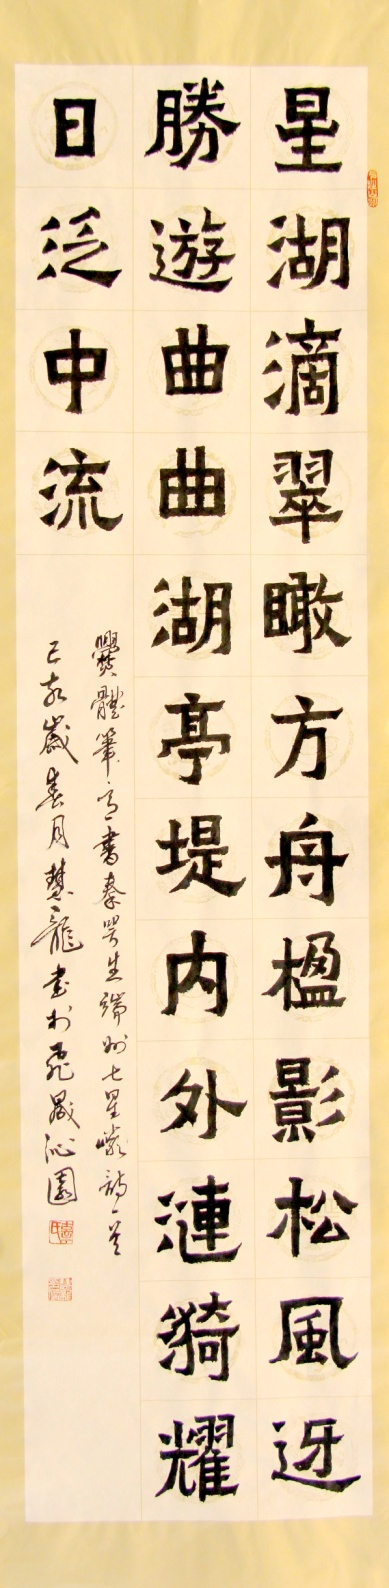 星湖滴翠瞰方舟楹影松風迓
勝遊曲曲湖亭堤内外漣猗耀
日泛中流
爨體筆意書秦咢生端州七星巖詩一首
己亥歲春月慧龍書於飛晟沁園